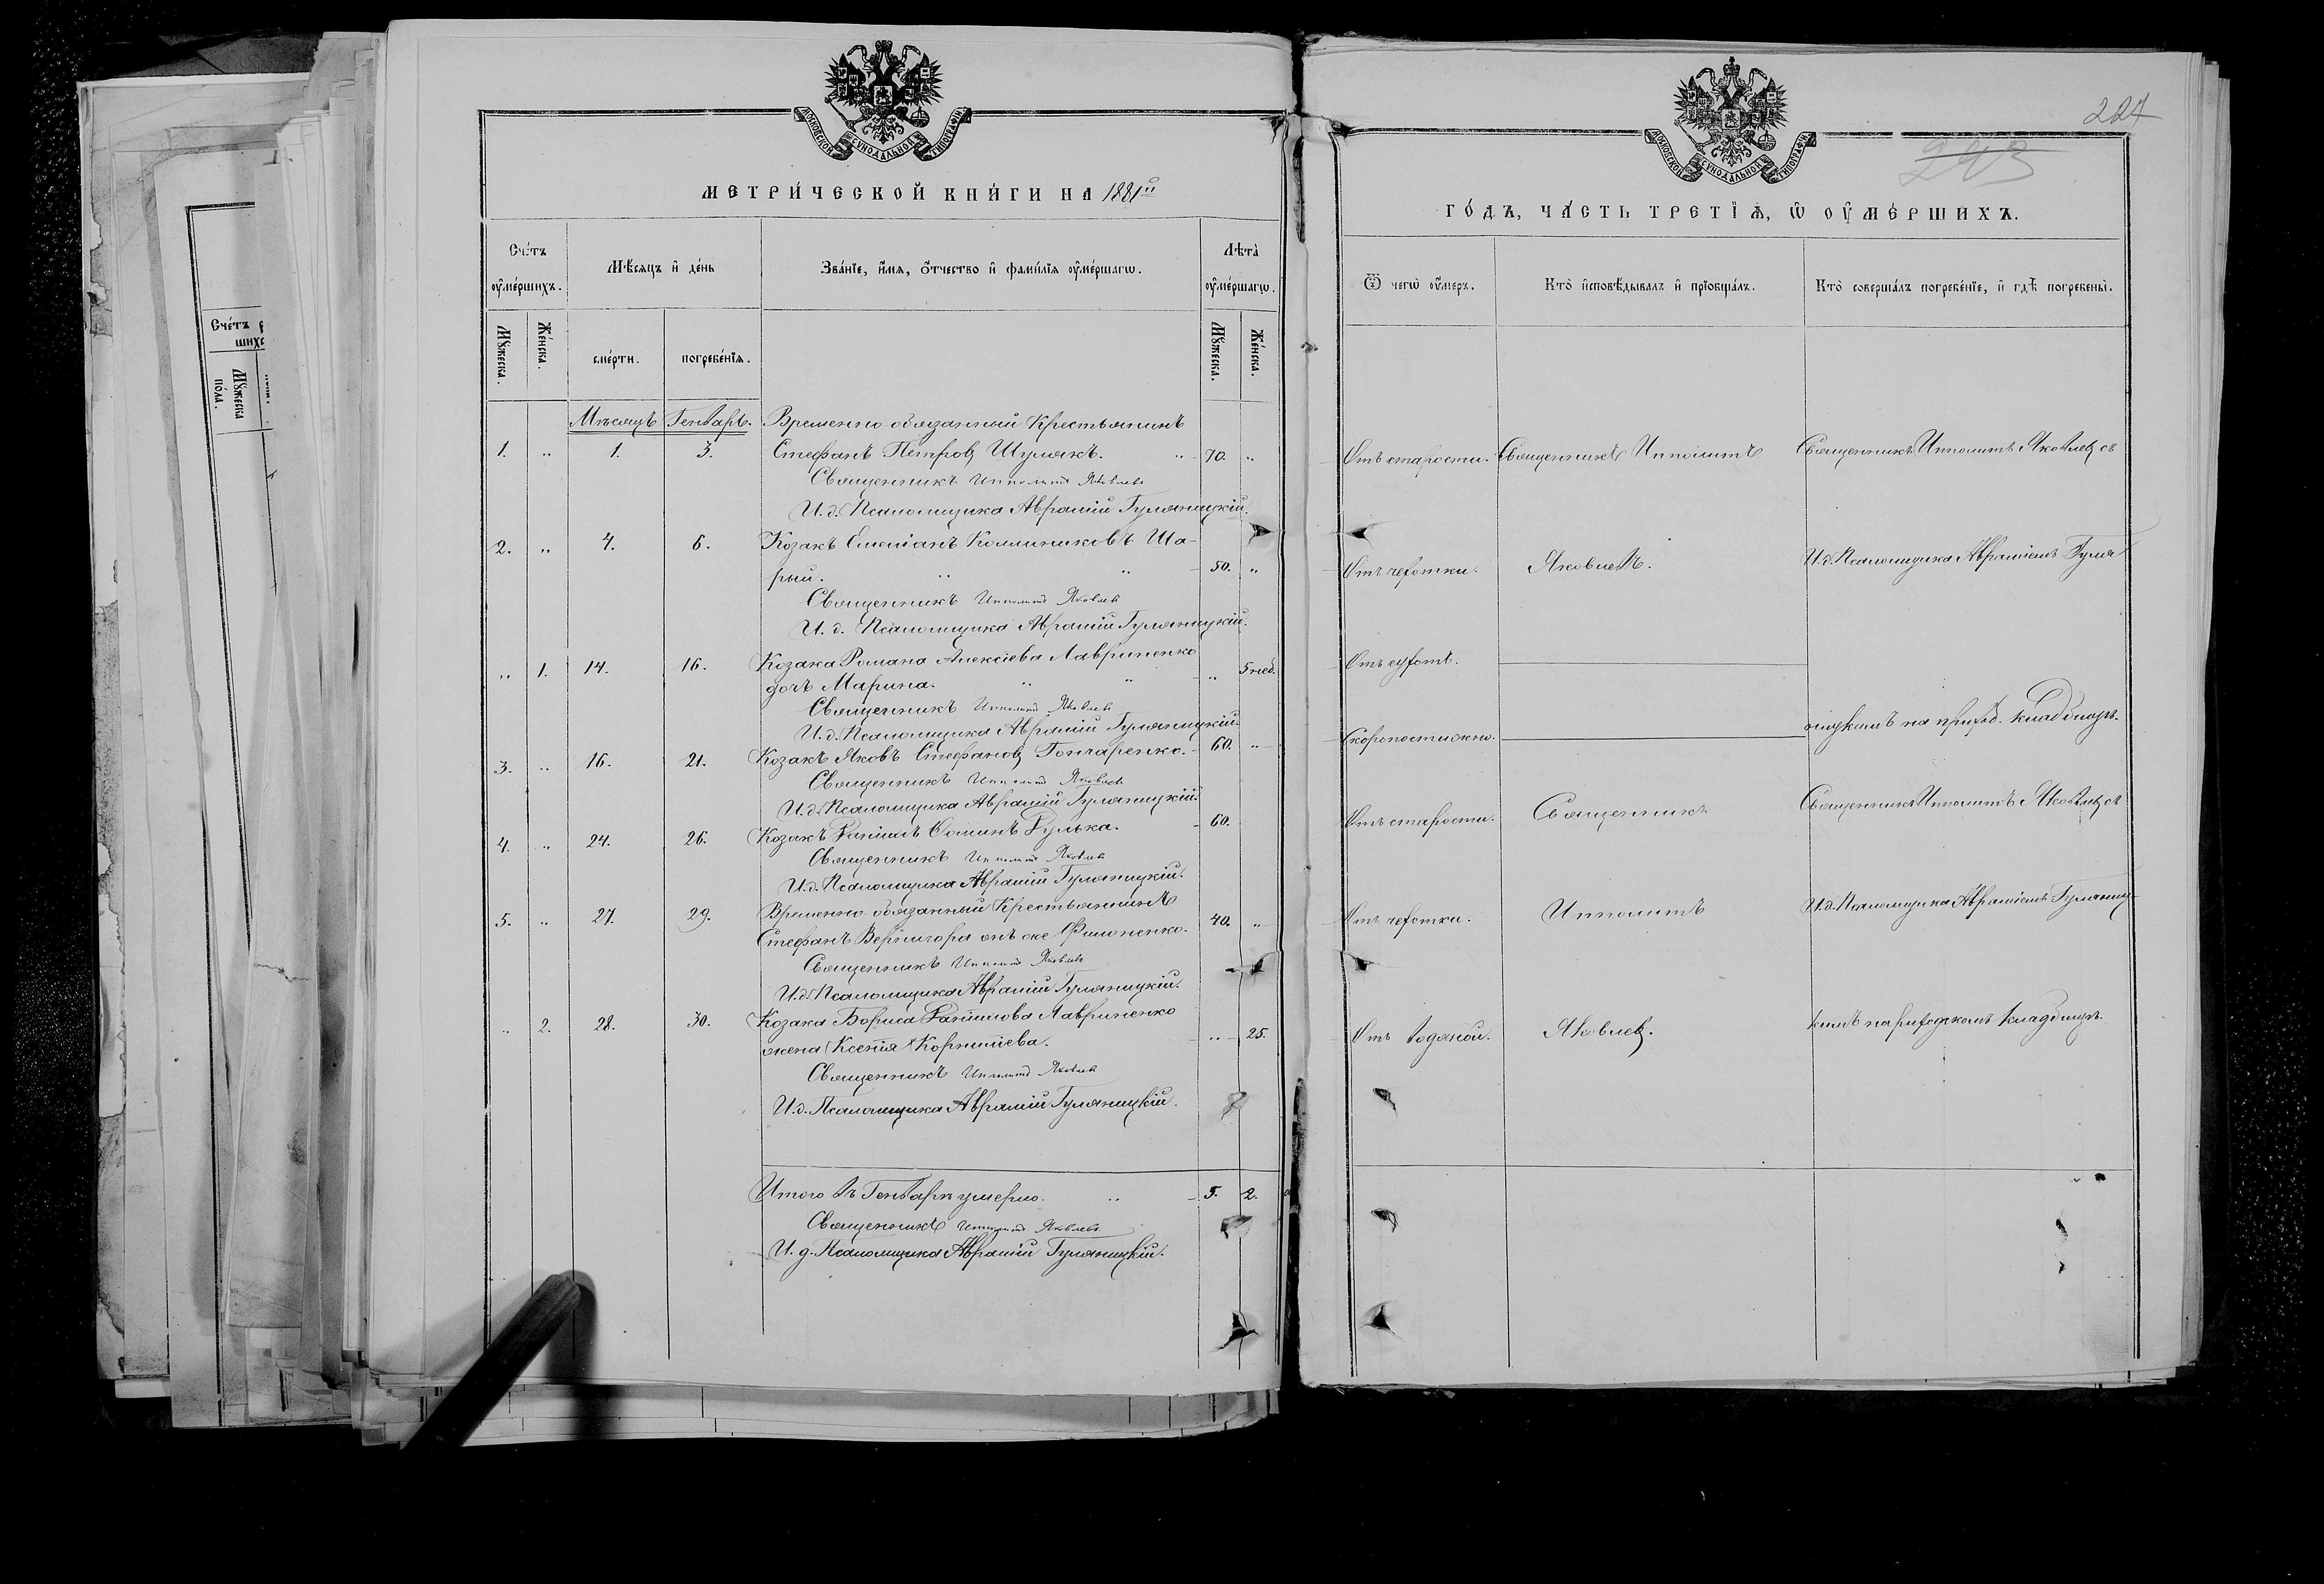 МОСКОВСКОЙ СѴНОДАЛЬНОЙ ТИПОГРАФІИ
МЕТРИ́ЧЕСКОЙ КНИ́ГИ НА 1881й
Сче́тъ оумéршихъ.
Мѣ́сяцъ и҆ де́нь
Зва́нїе, и҆́мя, ѻ҆́тчество и҆ фами́лїя оу҆ме́ршагѡ.
Лѣ́та оу҆ме́ршагѡ.
Мꙋ́жеска.
Же́нска.
сме́рти.
погребе́нїя.
Мꙋ́жеска.
Же́нска.
Мѣсяцъ Генварь. Временно обязанный Крестьянинъ
1. „ 1. 3. Стефанъ Петровъ Шулякъ. „ 70. „
Священникъ Ипполитъ Яковлевъ
И. д. Псаломщика Аврамій Гуляницкій.
2. „ 4. 6. Козакъ Емеліанъ Каллиниковъ Ша-
рый. „ „ 50. „
Священникъ Ипполитъ Яковлевъ
И. д. Псаломщика Аврамій Гуляницкій.
„ 1. 14. 16. Козака Романа Алексіева Лавриненко
дочь Марина. „ „ „ 5 нед.
Священникъ Ипполитъ Яковлевъ
И. д. Псаломщика Аврамій Гуляницкій.
3. „ 16. 21. Козакъ Яковъ Стефановъ Гончаренко. 60. „
Священникъ Ипполитъ Яковлевъ
И. д. Псаломщика Аврамій Гуляницкій.
4. „ 24. 26. Козакъ Даніилъ Ѳоминъ Гулька. 60.
Священникъ Ипполитъ Яковлевъ
И. д. Псаломщика Аврамій Гуляницкій.
5. „ 27. 29. Временно-обязанный Крестьянинъ
Стефанъ Вернигора онъ же Филоненко. 40. „
Священникъ Ипполитъ Яковлевъ
И. д. Псаломщика Аврамій Гуляницкій.
„ 2. 28. 30. Козака Бориса Даніилова Лавриненко
жена Ксенія Корниліева. „ 25.
Священникъ Ипполитъ Яковлевъ
И. д. Псаломщика Аврамій Гуляницкій.
Итого въ Генварѣ умерло. „ 5. 2.
Священникъ Ипполитъ Яковлевъ
И. д. Псаломщика Аврамій Гуляницкій.
Сче́тъ
Мꙋ́жеска
по́ла.
227
243
МОСКОВСКОЙ СѴНОДАЛЬНОЙ ТИПОГРАФІИ
ГО́ДЪ, ЧА́СТЬ ТРЕТЇѦ, Ѡ҆ ОУ҆МЕ́РШИХЪ.
Ѿ чегѡ̀ оу҆́меръ.
Кто̀ и҆сповѣ́дывалъ и҆ прїобща́лъ.
Кто̀ соверша́лъ погребе́нїе, и҆ гдѣ̀ погребены̀.
Отъ старости. Священникъ Ипполитъ Священникъ Ипполитъ Яковлевъ съ
Отъ чехотки. Яковлевъ. И. д. Псаломщика Авраміемъ Гуля-
Отъ сухотъ.
ницкимъ на приход. кладбищѣ.
Скоропостижно.
Отъ старости. Священникъ Священникъ Ипполитъ Яковлевъ съ
Отъ чехотки. Ипполитъ И. д. Псаломщика Авраміемъ Гуляниц-
Отъ водяной. Яковлевъ. кимъ на приходскомъ кладбищѣ.